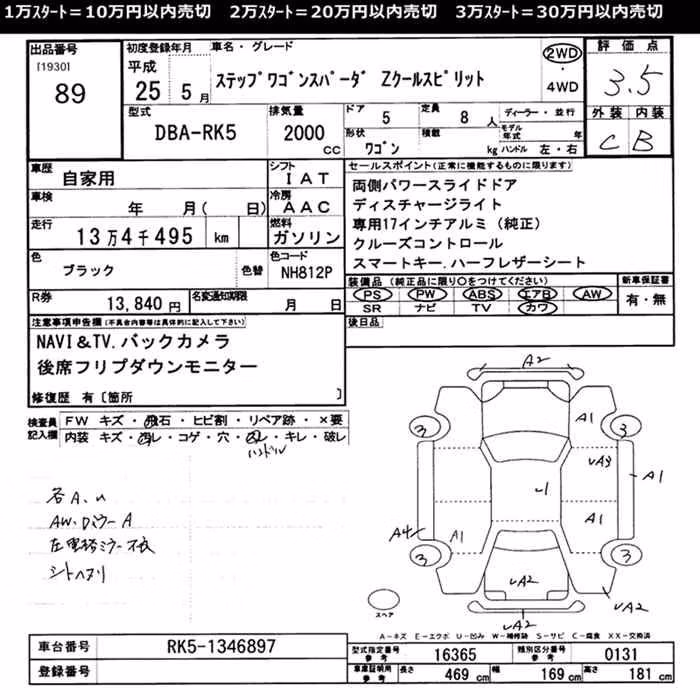 1万ｽﾀｰﾄ＝10万円以内売切　2万ｽﾀｰﾄ＝20万円以内売切　3万ｽﾀｰﾄ＝30万円以内売切
出品番号
[1930]
89
初度登録年月
平成
25 5月
車名・グレード
ｽﾃｯﾌﾟﾜｺﾞﾝｽﾊﾟｰﾀﾞ Zｸｰﾙｽﾋﾟﾘｯﾄ
2WD
・
4WD
評価点
3.5
型式
DBA-RK5
排気量
2000
CC
ドア
5
定員
8 人
形状
ﾜｺﾞﾝ
積載
kg
ディーラー・並行
モデル年式 年
ハンドル 左・右
外装 内装
C B
車歴
自家用
シフト
IAT
車検
年 月( 日)
冷房
AAC
走行
13万4千495 km
燃料
ガソリン
色
ブラック
色替
色コード
NH812P
R券
13,840 円
名変通知期限
月 日
セールスポイント(正常に機能するものに限ります)
両側パワースライドドア
ディスチャージライト
専用17インチアルミ（純正）
クルーズコントロール
スマートキー.ハーフレザーシート
装備品 (純正品に限り○をつけてください)
PS PW ABS エアB AW
SR ナビ TV カワ
新車保証書
有・無
後日品
注意事項申告欄(不具合内容等は具体的に記入して下さい)
NAVI&TV.バックカメラ
後席フリップダウンモニター
修復歴 有〔箇所 〕
検査員記入欄
FW キズ・飛石・ヒビ割・リペア跡・×要
内装 キズ・汚レ・コゲ・穴・凹・キレ・破レ
ハンドル
各A.u
AW.Dミラー A
シートヘタリ
A2
3 A1 3
uA3
A1
u1
A1
A4
A1
3 3
uA2
uA2
uA2
スペア
A－キズ E－エクボ U－凹み W－補修跡 S－サビ C－腐食 XX－交換済
車台番号
RK5-1346897
登録番号
型式指定番号
参考
16365
類別区分番号
参考
0131
車庫証明用
参考
長さ
469 cm
幅
169 cm
高さ
181 cm